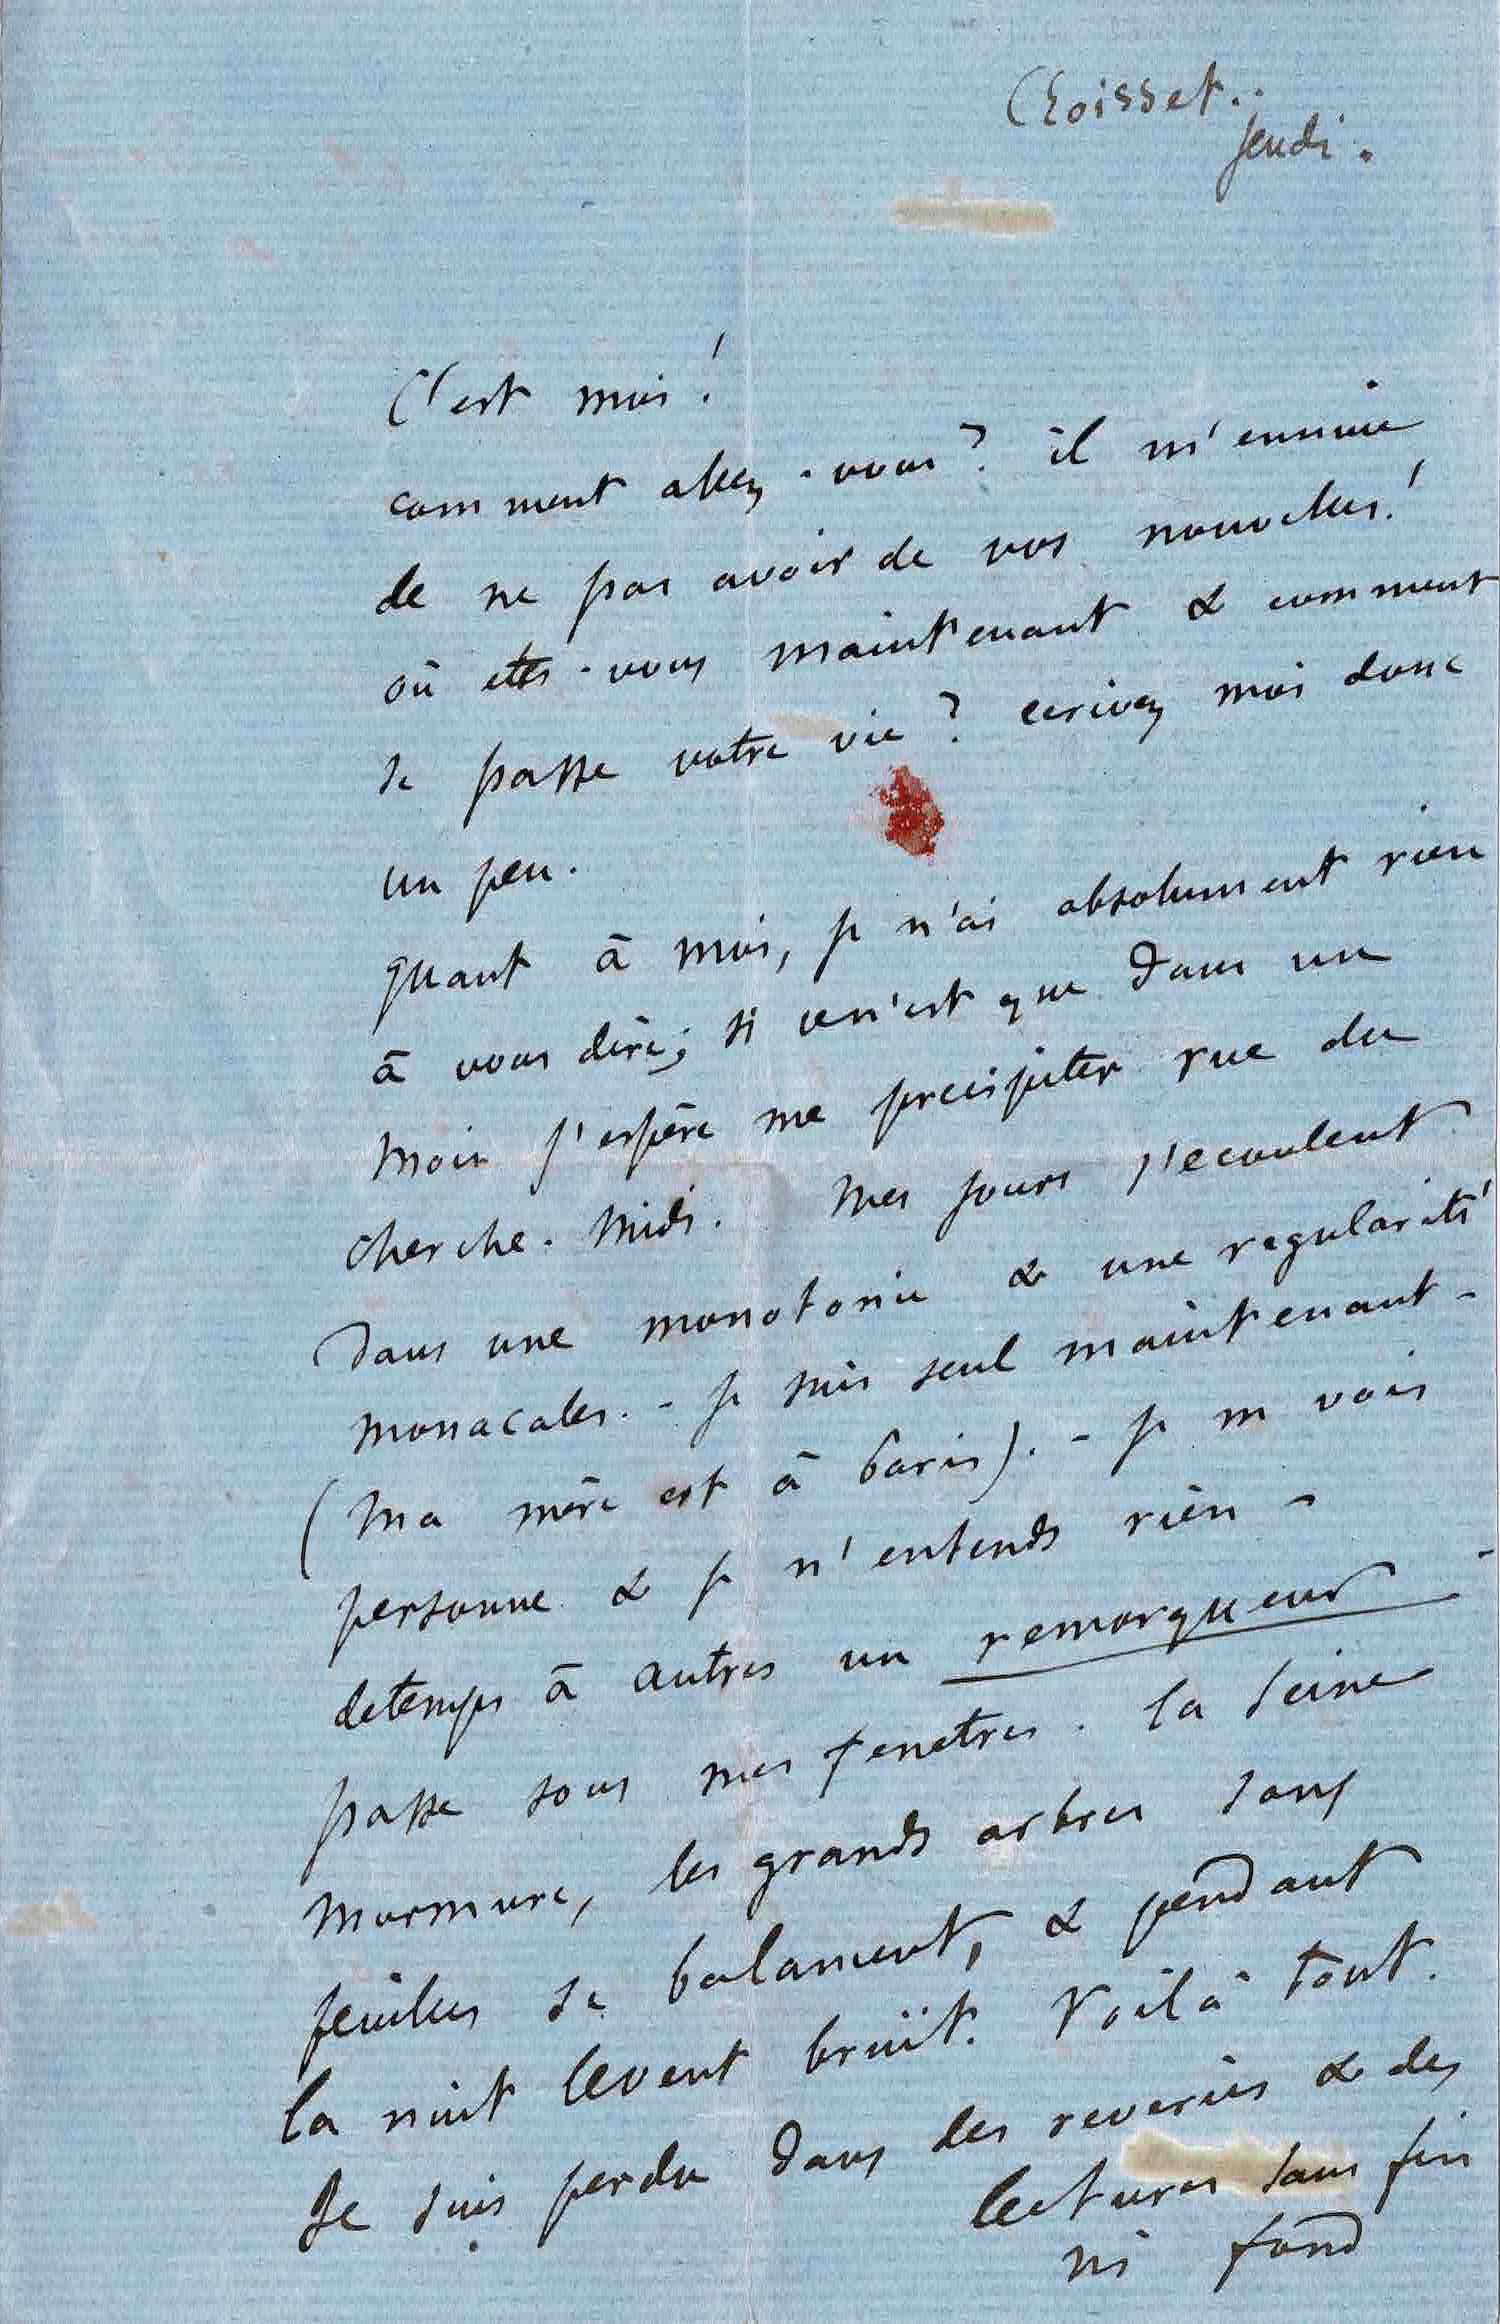 Croisset..
Jeudi.
C'est moi!
comment allez-vous? il m'ennuie
de ne pas avoir de vos nouvelles!
où etes-vous maintenant & comment
se passe votre vie? ecrivez moi donc
un peu.
quant à moi, je n'ai absolument rien
à vous dire; si ce n'est que dans un
mois j'espère me precipiter rue du
cherche-midi. Mes jours s'ecoulent
dans une monotonie & une regularité
monacales. - je suis seul maintenant -
(Ma mère est à Paris). - je ne vois
personne & je n'entends rien -
de temps à autres un remorqueur -
passe sous mes fenetres. la Seine
murmure, les grands arbres sans
feuilles se balancent, & pendant
la nuit le vent bruit. Voilà tout.
Je suis perdu dans des reveries & des
lectures sans fin
ni fond